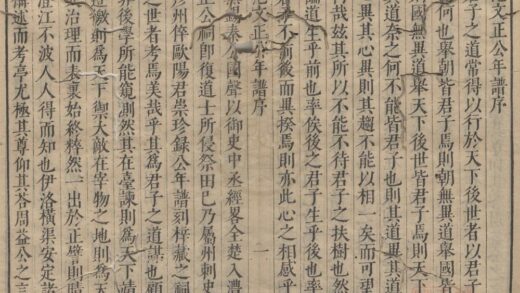 文正公年譜序
子之道常得以行於天下後世者以君子
何也舉朝皆君子焉則朝無異道舉國皆
國無異道舉天下後世皆君子焉則天下
其道奈之何不能皆君子也則其道異其道
異其心異則其趨不能以相一矣而可望
哉玆其所以不能不待君子之扶樹也然
道生乎前也率俟後之君子生乎後也率
不前後而異揆焉則亦此心之相感乎
文正公年譜序 一
秦公國聲以御史中丞經畧全楚入澧
正公祠即復道士所侵祭田已乃屬州刺史
州倅歐陽君崇珍錄公年譜刻梓藏之祠
之世者考焉美哉乎其為君子之道謀也顧
後學所能窺測然其在臺諫則為天下靖
徼則為天下禦大敵在宰物之地則為天
治理而表裏始終粹然一出於正譬則晴
澄江不波人人得而知也伊洛橫渠安定諸
講述而考亭尤極其尊仰其荅周益公之言